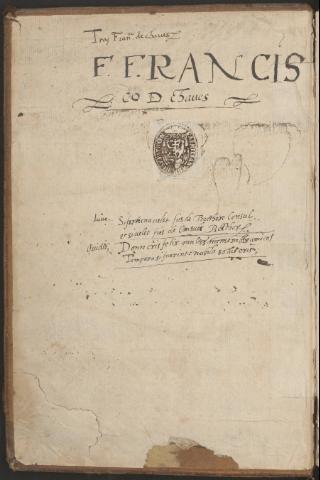 Fray Fran.co de chaues
F. FRANCIS
CO D Chaues
Iuue. Si fortuna uolet fies de Rhethore Consul
si uolet fies de Consule Rhethor
Ouidi. Donec eris felix multos numerabis amicos
Tempora si fuerint nubila solus eris